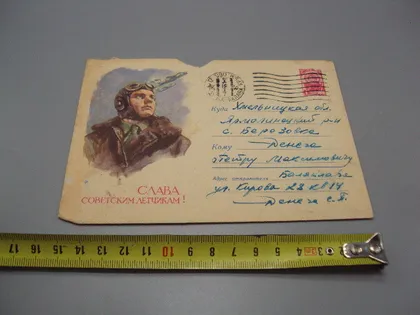 СЛАВА
СОВЕТСКИМ ЛЕТЧИКАМ!
Куда Хмельницкая обл.
Ярмолинецкий р-н
с. Березовка
Кому Денега
Петру Максимовичу
Адрес отправителя Балаклава
ул. Кирова 23 кв 14
Денега С.П.
17 16 15 14 13 12 11 10 9 8 7 6 5 4 3